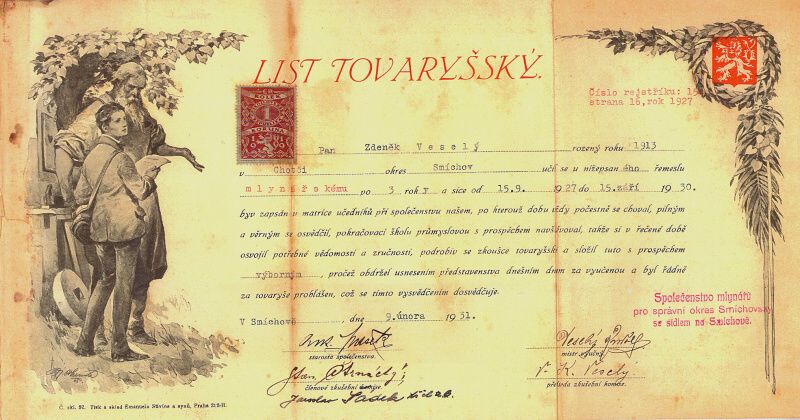 LIST TOVARYŠSKÝ.
Číslo rejstříku: 15
strana 16, rok 1927
KOLEK
1
KORUNA
Pan Zdeněk Veselý rozený roku 1913
v Chotči okres Smíchov učil se u nížepsaného řemeslu
mlynářskému po 3 roky a sice od 15.9. 1927 do 15.září 1930.
byv zapsán v matrice učedníků při společenstvu našem, po kterouž dobu vždy počestně se choval, pilným
a věrným se osvědčil, pokračovací školu průmyslovou s prospěchem navštěvoval, takže si v řečené době
osvojil potřebné vědomosti a zručnosti, podrobiv se zkoušce tovaryšské a složil tuto s prospěchem
výborným, pročež obdržel usnesením představenstva dnešním dnem za vyučenou a byl řádně
za tovaryše prohlášen, což se tímto vysvědčením dosvědčuje.
V Smíchově, dne 9.února 1931.
Společenstvo mlynářů
pro správní okres Smíchovský
se sídlem na Smíchově.
starosta společenstva.
Veselý
mistr výučný
členové zkušební komise.
V. K. Veselý
předseda zkušební komise.
Jaroslav Sádek
Č. skl. 92. Tisk a sklad Emanuela Stivína a synů, Praha 218-II.